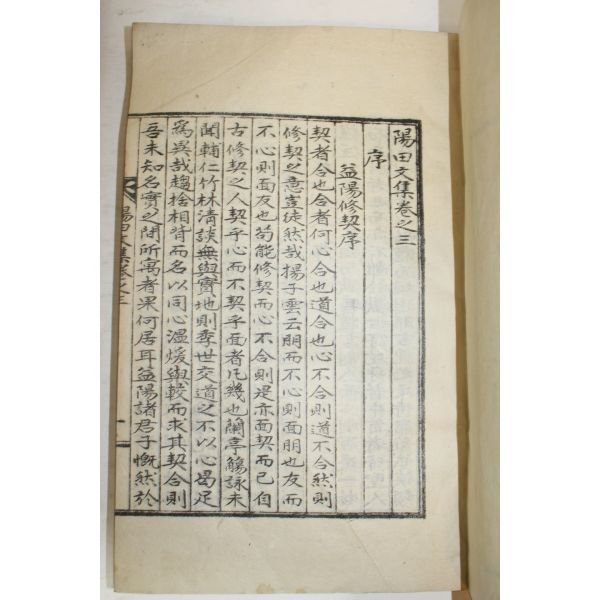 陽田文集卷之三
序
益陽修契序
契者合也合者何心合也道合也心不合則道不合然則
修契之意豈徒然哉揚子雲云朋而不心則面朋也友而
不心則面友也苟能修契而心不合則是亦面契而已自
古修契之人契乎心而不契乎面者凡幾也蘭亭觴詠未
聞輔仁竹林淸談無與實地則季世交道之不以心曷足
爲異哉趨捨相背而名以同心溫煖與較而求其契合則
吾未知名實之間所寓者果何居耳益陽諸君子慨然於
陽田文集卷之三